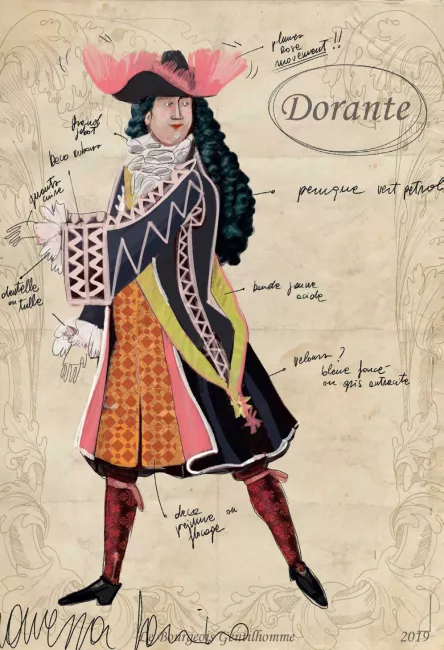 plumes
rose
movement !!
Dorante
grand
jabot
Deco velours
perruque vert pétrol
dentelle
ou tulle
bande jaune
acide
velours ?
bleue foncé
ou gris
deco
peinture ou
flocage
Le Bourgeois Gentilhomme
2019